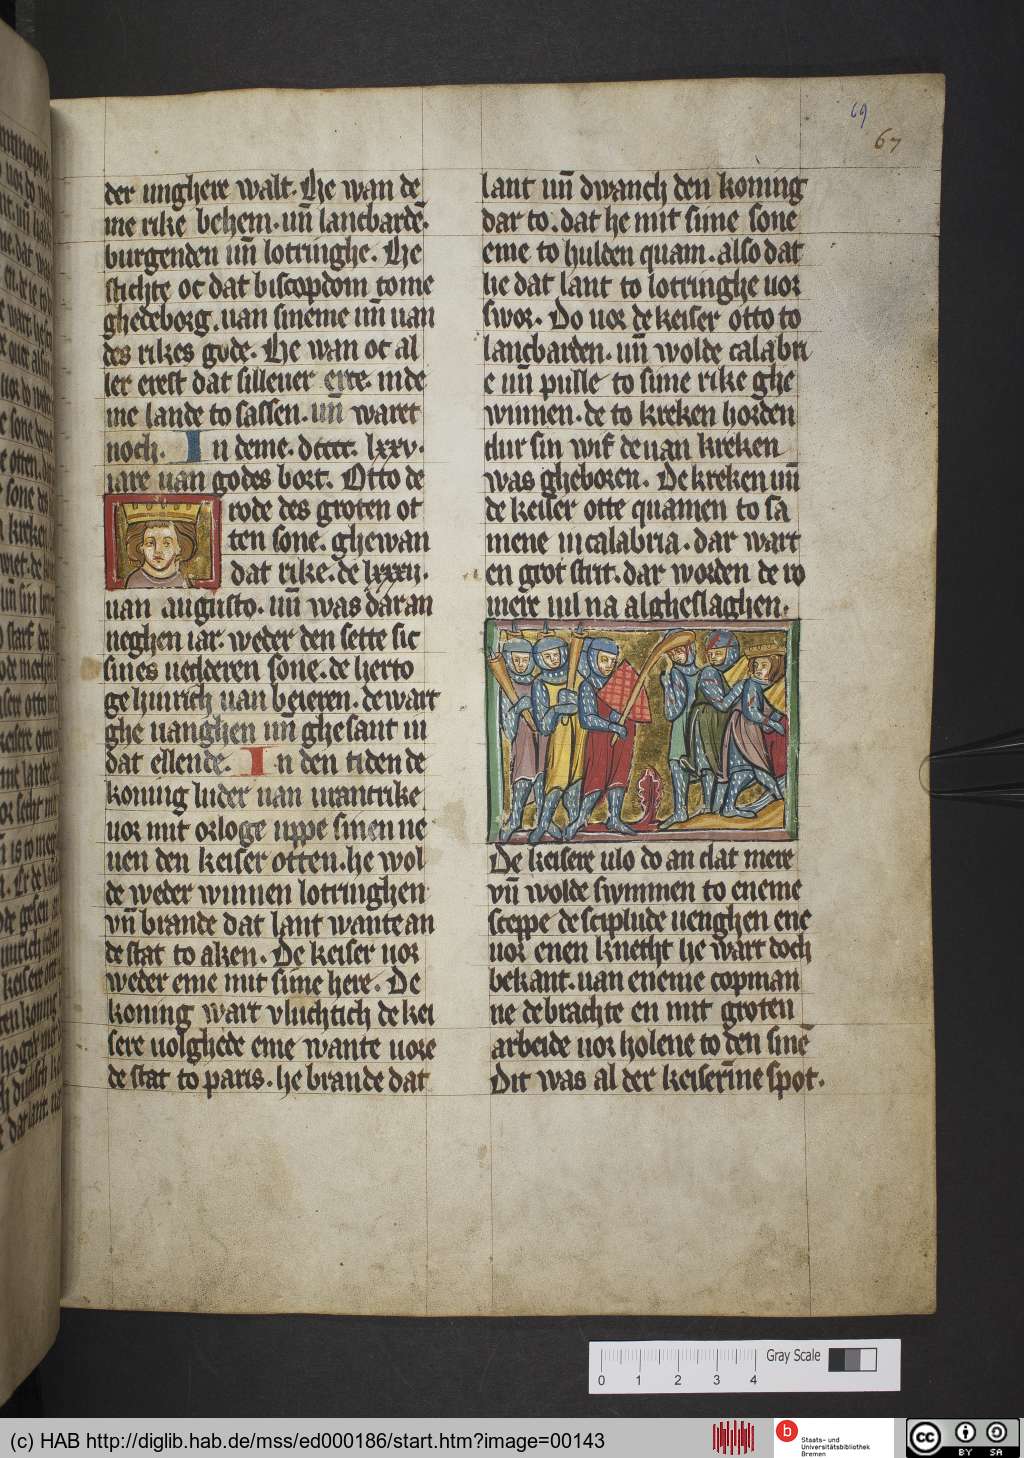 69
67
der unghere walt. He wan de
me rike behem. uñ lancbardē.
burgenden uñ lotringhe. He
stichte oc dat biscopdom to me
ghedeborg. uan sineme uñ uan
des rikes gode. He wan oc al
ler erest dat silleuer erce. in de
me lande to sassen. uñ waret
noch. In deme. dcccc. lxxv.
iare uan godes bort. Otto de
rode des groten ot
ten sone. ghewan
dat rike. de lxxxij.
uan augusto. uñ was dar an
neghen iar. weder den sette sic
sines uedderen sone. de herto
ge hinrich uan beieren. de wart
ghe uanghen uñ ghe sant in
dat ellende. In den tiden de
koning luder uan urancrike
uor mit orloge uppe sinen ne
uen den keiser otten. he wol
de weder winnen lotringhen
vñ brande dat lant wante an
de stat to aken. De keiser uor
weder eme mit sime here. De
koning wart vluchtich de kei
sere uolghede eme wante uore
de stat to paris. he brande dat
lant uñ dwanch den koning
dar to. dat he mit sime sone
eme to hulden quam. also dat
he dat lant to lotringhe uor
swor. Do uor de keiser otto to
lancbarden. uñ wolde calabri
e uñ pulle to sime rike ghe
winnen. de to kreken horden
dur sin wif de uan kreken
was gheboren. De kreken uñ
de keiser otte quamen to sa
mene in calabria. dar wart
en grot strit. dar worden de ro
mere uil na algheslaghen.
De keisere ulo do an dat mere
vñ wolde swymmen to eneme
sceppe de sciplude uenghen ene
uor enen knecht he wart doch
bekant. uan eneme copman
ne de brachte en mit groten
arbeide uor holene to den sinē
Dit was al der keiserinne spot.
0 1 2 3 4
Gray Scale
(c) HAB http://diglib.hab.de/mss/ed000186/start.htm?image=00143
b
Staats- und
Universitätsbibliothek
Bremen
cc
BY SA